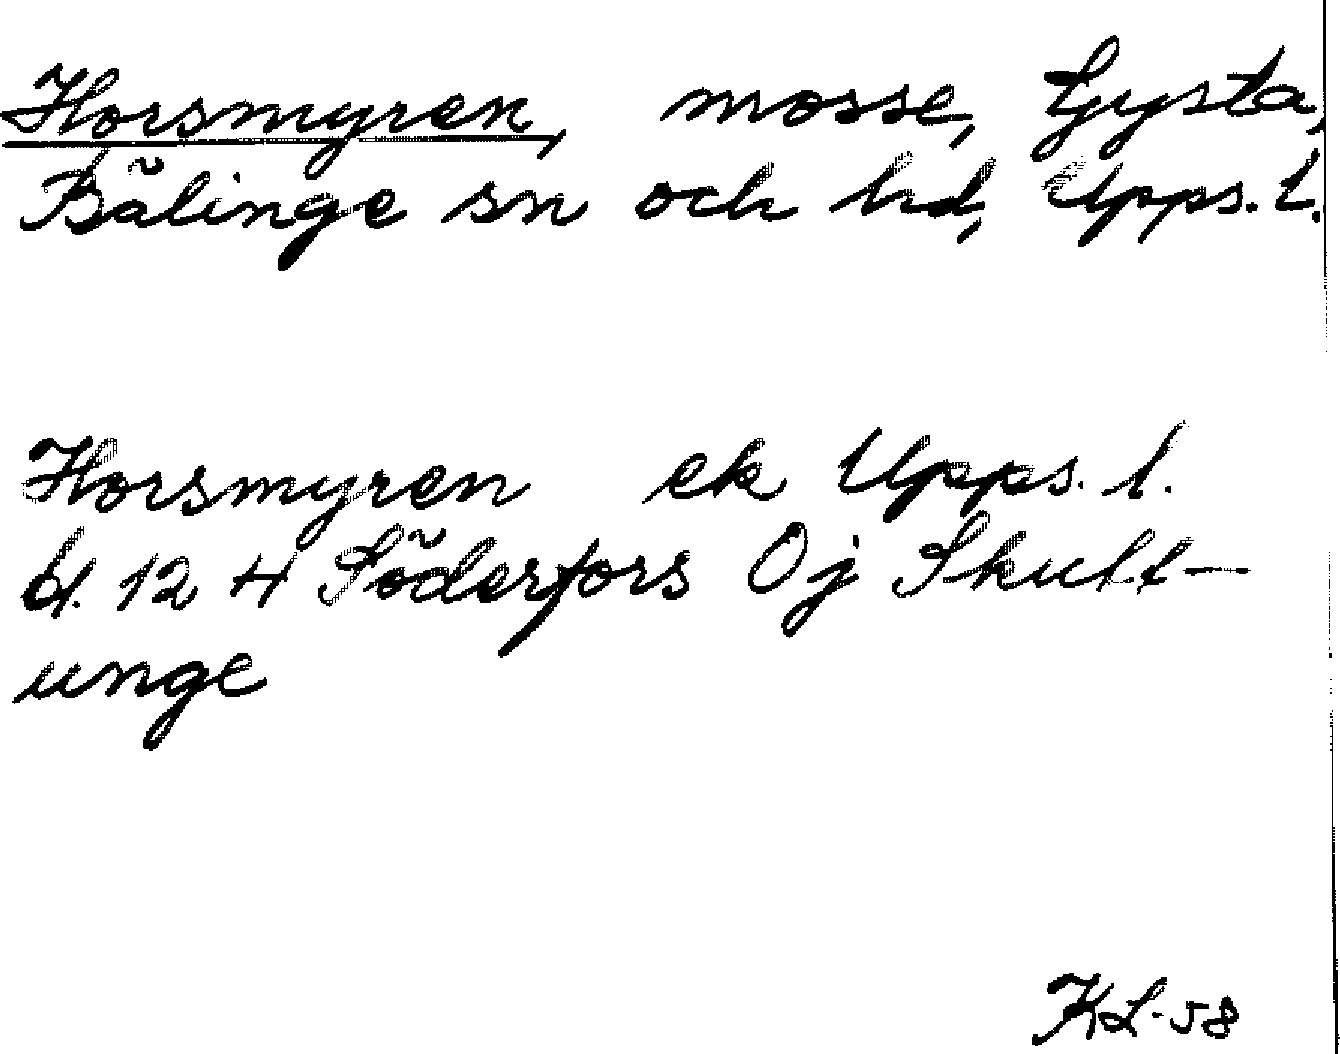 Horsmyren, mosse, Gysta,
Bälinge sn och hd, Upps. l.
Horsmyren ek Upps. l.
bl. 12 H Söderfors Oj Skutt-
unge
KL-58